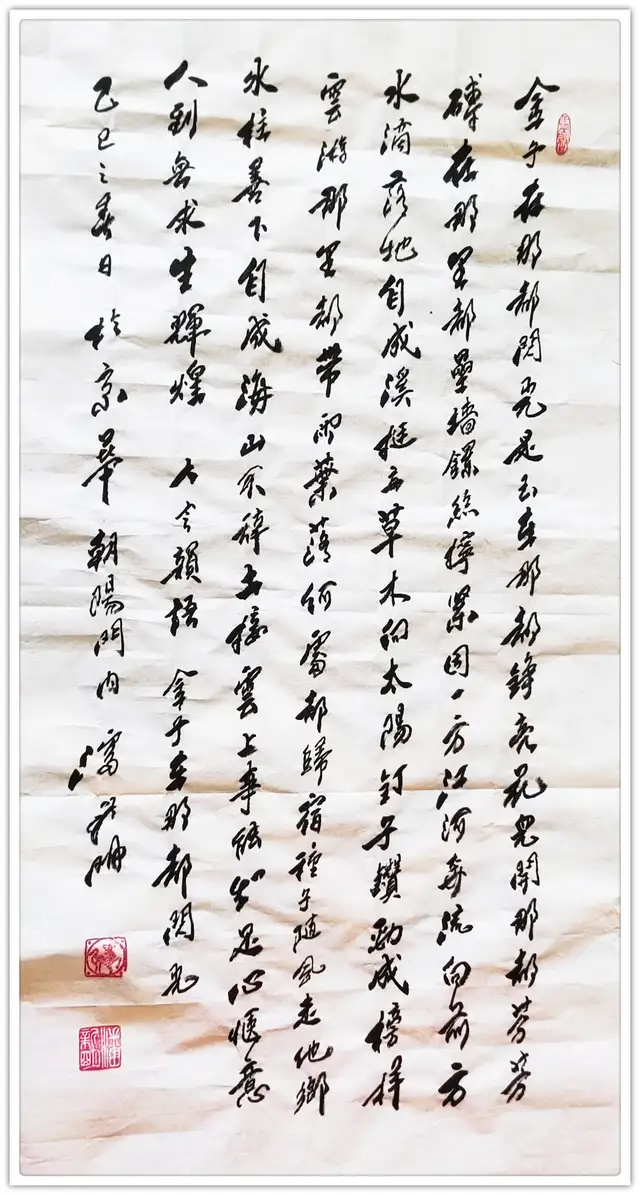 金子在那都閃光是玉在那都錚亮花兒開那都芬芳
磚在那里都壘墻鏍絲擰緊固一方江河奔流向前方
水滴落地自成溪挺立草木向太陽釘子鑽勁成榜样
雲游那里都帶雨葉落何處都歸宿種子随風走他鄉
水往善下自成海山不辞土接雲上事能知足心惬意
人到無求生輝煌 古今韻語 金子在那都閃光
乙巳之春日於京華朝陽門内